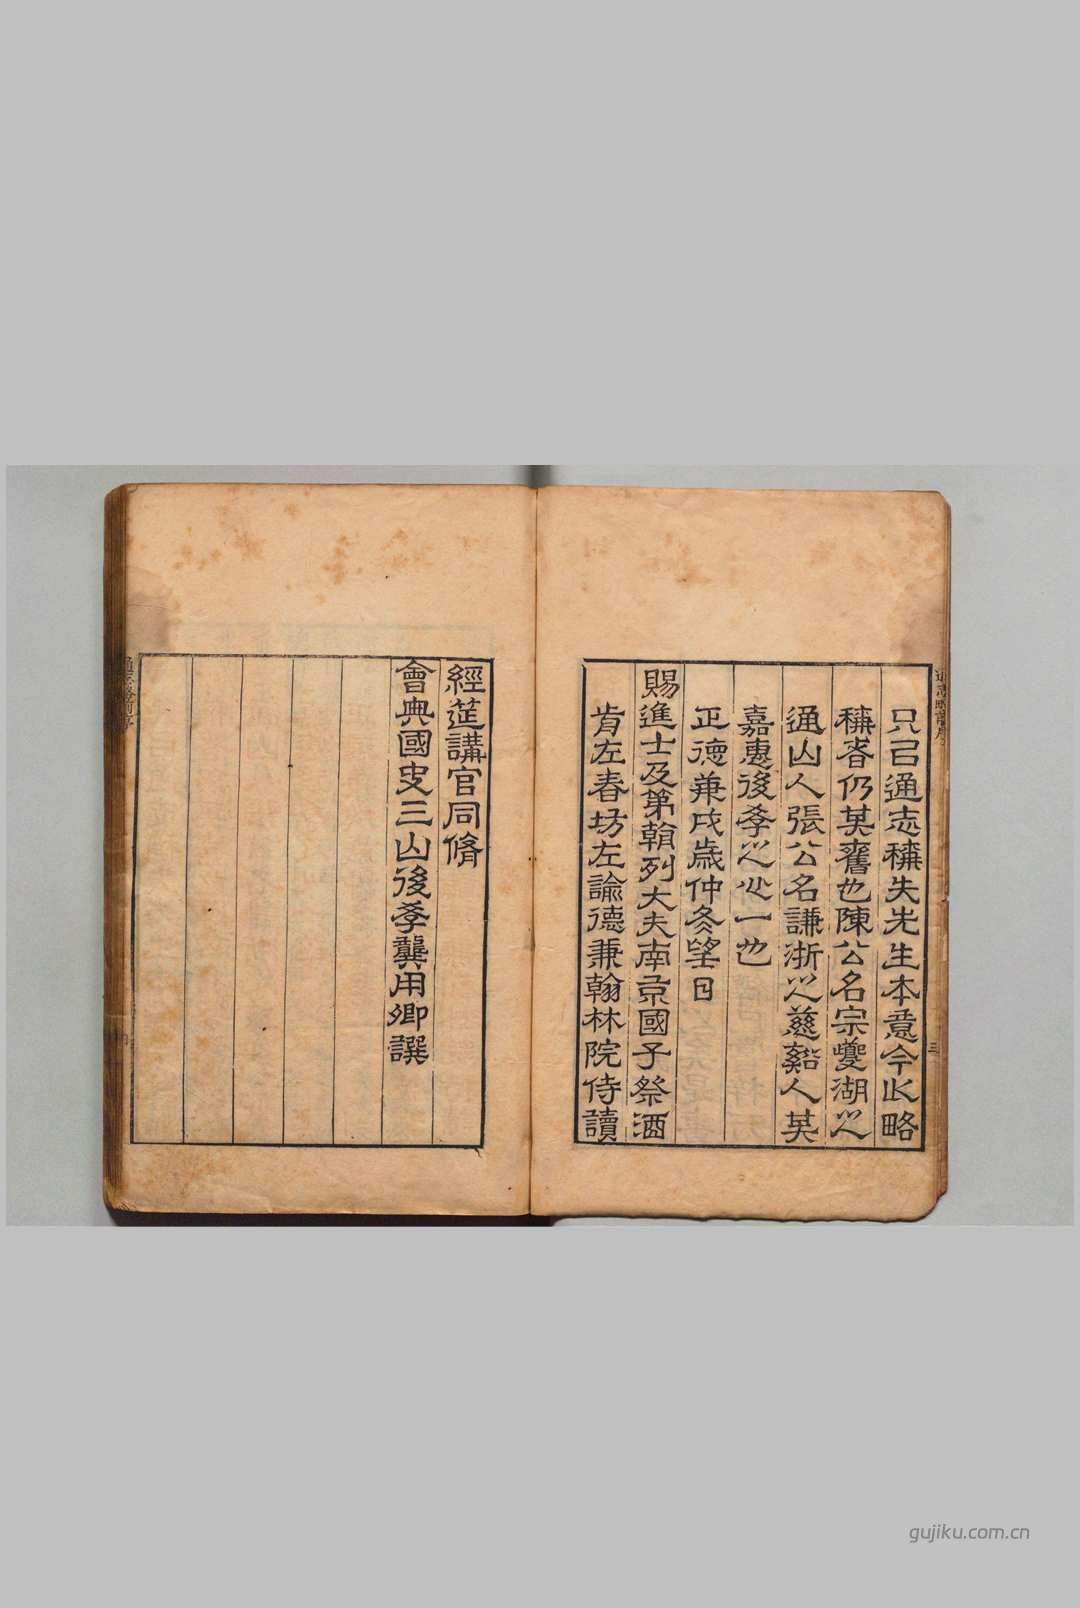 只㠯通志稱失先生本意今此略
稱者仍其舊也陳公名宗夔湖之
通山人張公名謙浙之慈谿人其
嘉惠後學之心一也
正德庚戌歲仲冬望日
賜進士及第翰列大夫南京國子祭酒
前左春坊左諭德兼翰林院侍讀
經筵講官同脩
會典國史三山後學龔用卿譔
gujiku.com.cn